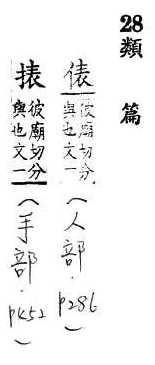 28
類篇
俵 彼廟切分與也文一(人部.p286)
捸 彼廟切分與也文一(手部.p452)